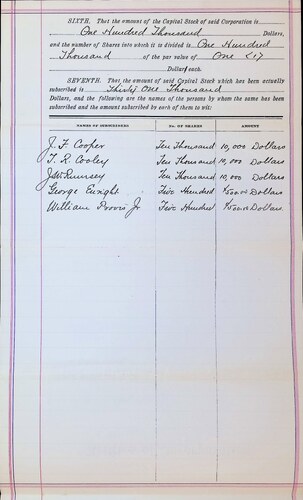 SIXTH. That the amount of the Capital Stock of said Corporation is
One Hundred Thousand Dollars,
and the number of Shares into which it is divided is One Hundred
Thousand of the par value of One
Dollar each.
SEVENTH. That the amount of said Capital Stock which has been actually
subscribed is Thirty One Thousand
Dollars, and the following are the names of the persons by whom the same has been
subscribed and the amount subscribed by each of them to wit:
NAMES OF SUBSCRIBERS No. OF SHARES AMOUNT
J. F. Cooper Ten Thousand 10,000 Dollars
T. R. Cooley Ten Thousand 10,000 Dollars
J. W. Rumsey Ten Thousand 10,000 Dollars
George Enright Five Hundred $500.00 Dollars.
William Provis Jr. Five Hundred $500.00 Dollars.